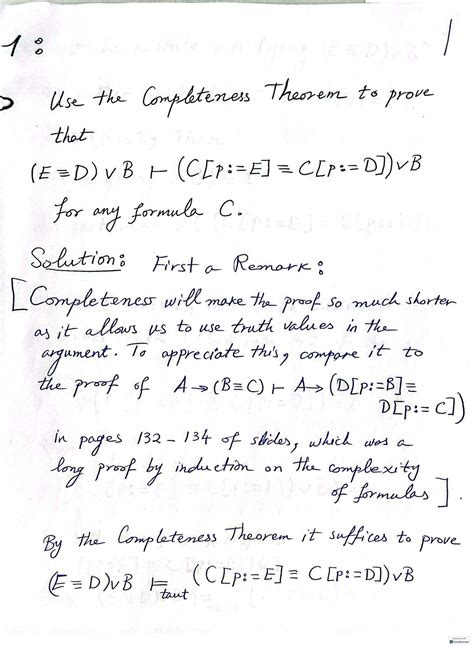 1:
1
Use the Completeness Theorem to prove
that
(E ≡ D) ∨ B ⊢ (C[p:=E] ≡ C[p:=D]) ∨ B
for any formula C.
Solution: First a Remark:
[Completeness will make the proof so much shorter
as it allows us to use truth values in the
argument. To appreciate this, compare it to
the proof of A → (B ≡ C) ⊢ A → (D[p:=B] ≡
D[p:=C])
in pages 132 - 134 of slides, which was a
long proof by induction on the complexity
of formulas].
By the Completeness Theorem it suffices to prove
(E ≡ D) ∨ B ⊨taut (C[p:=E] ≡ C[p:=D]) ∨ B